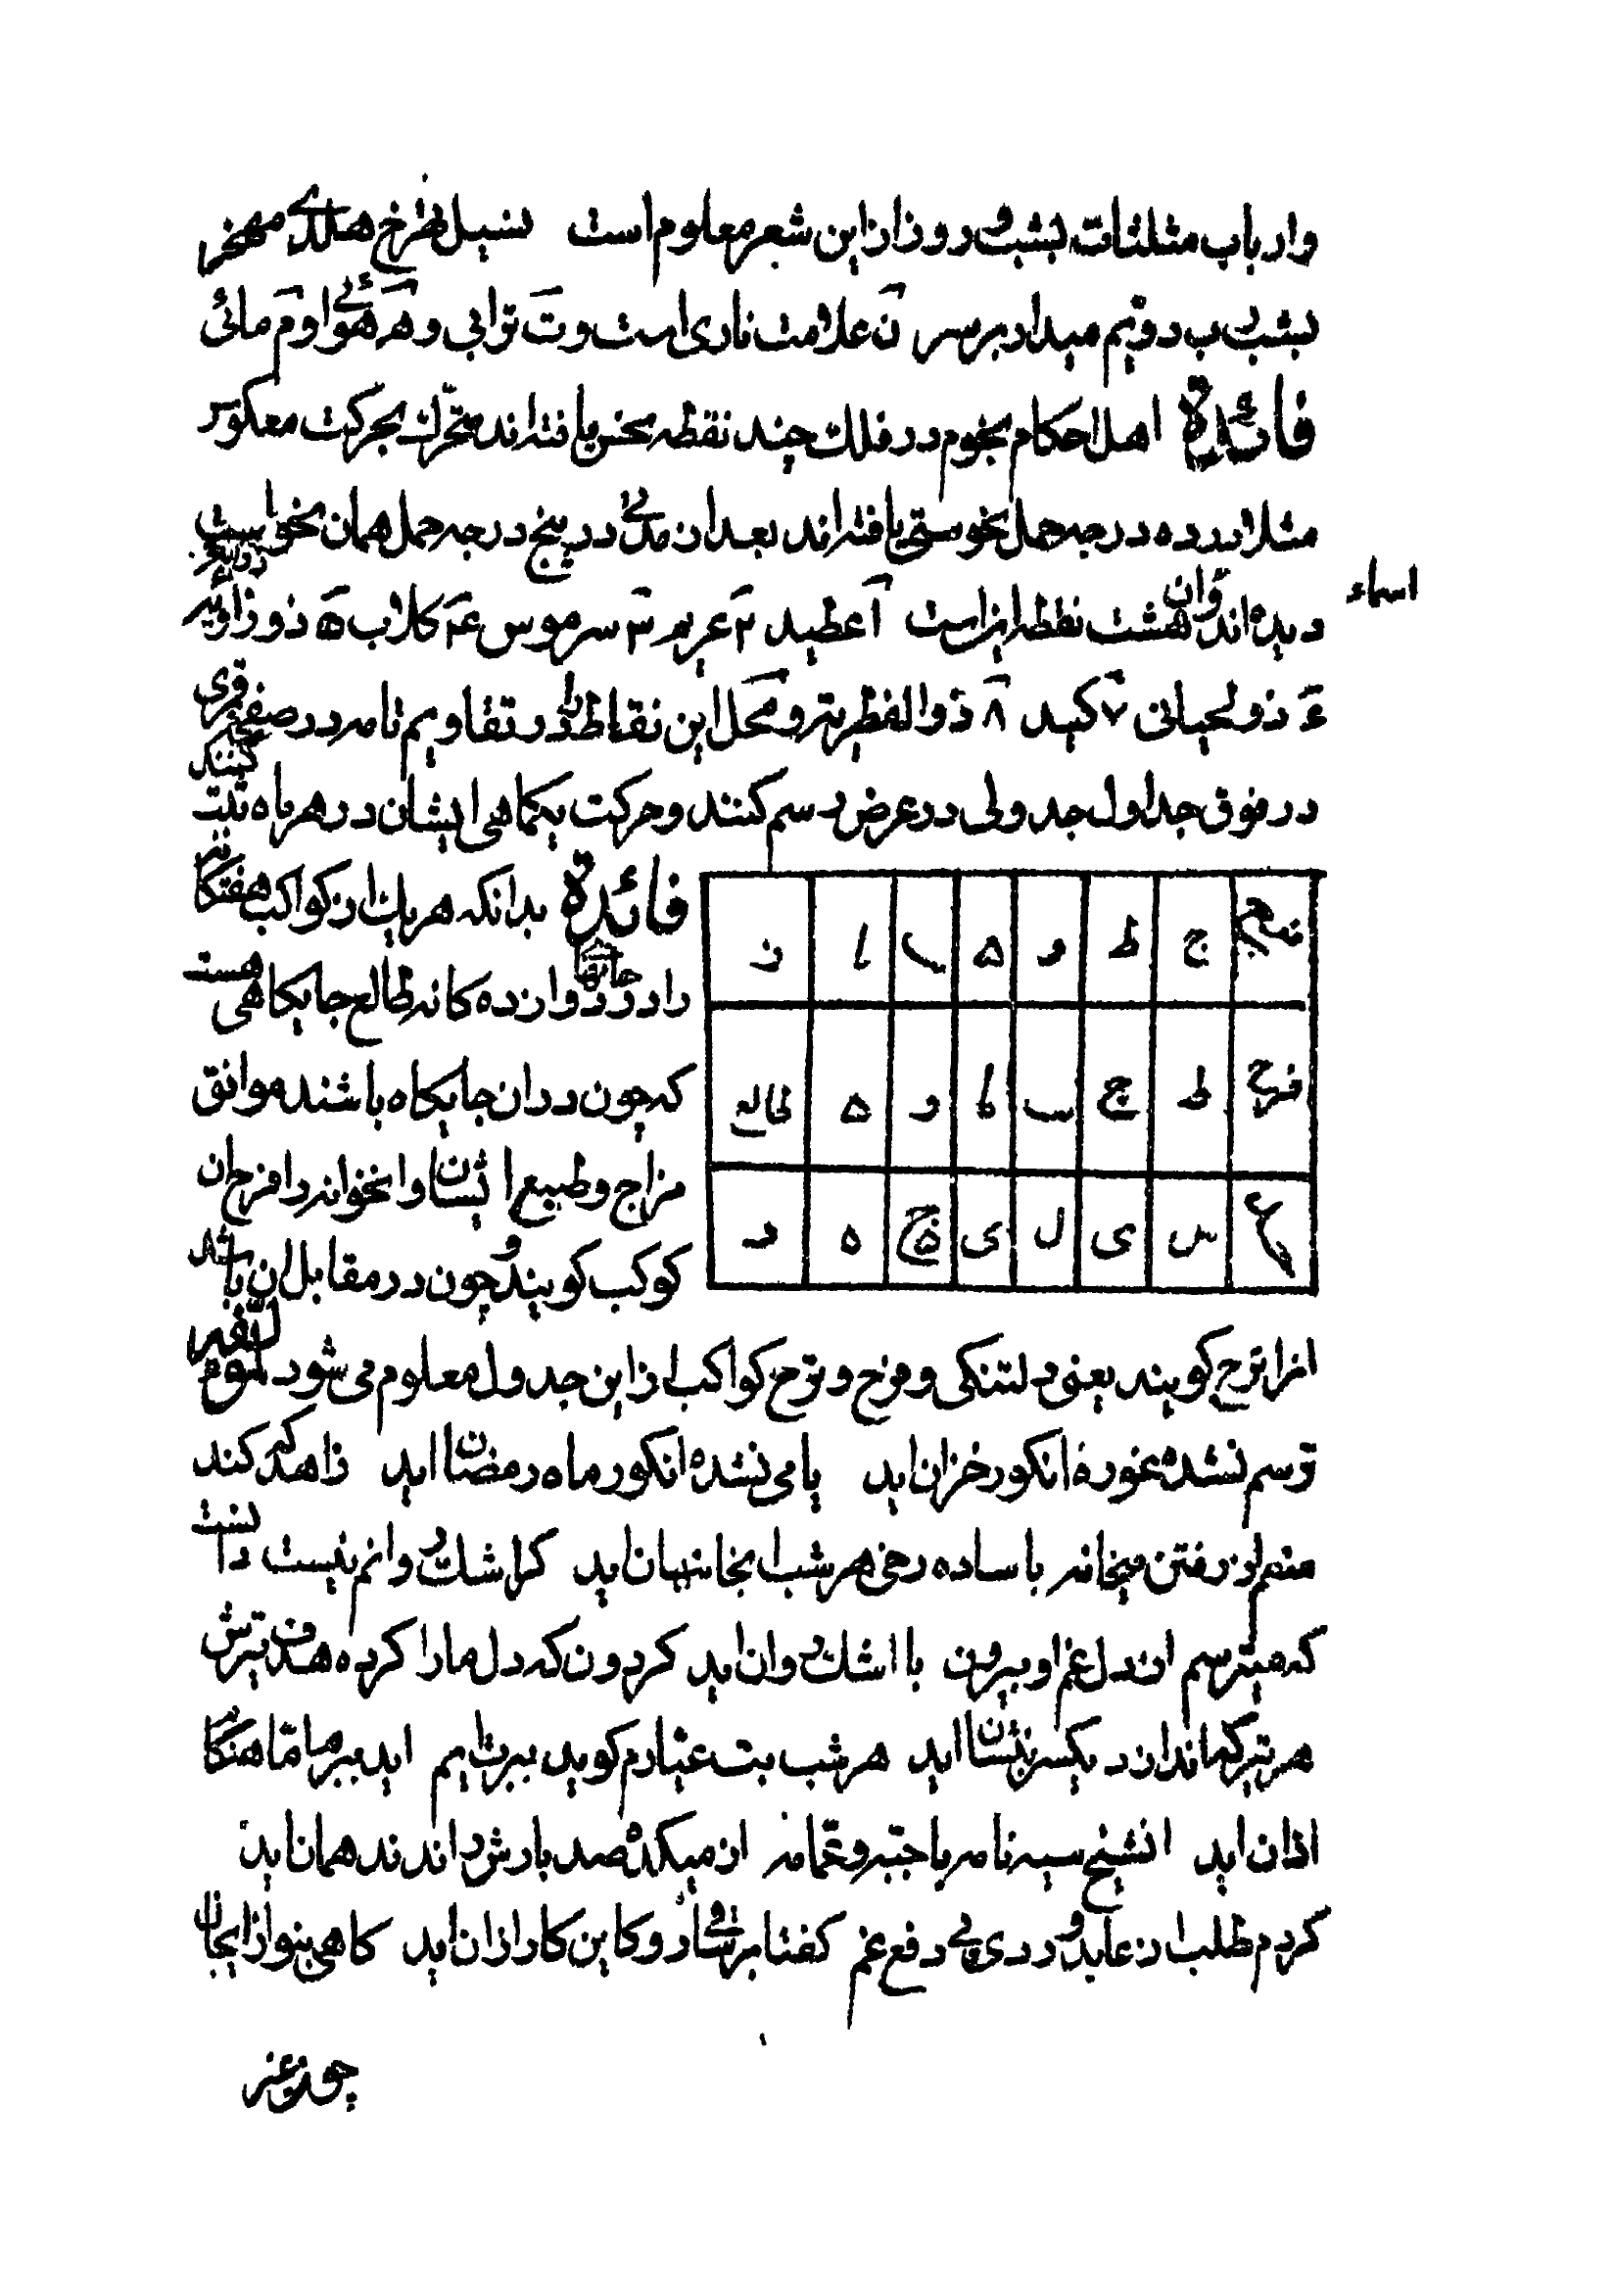 وارباب مثلثات بشب و روز از این شعر معلوم است
بشب ب دویم میدار بر سر نَ علامت ناری است و تَ ترابی و هَ هوائی و مَ مائی
فائدة اهل احکام نجوم در فلک چند نقطه نحس یافته اند متحرک بحرکت معکوس
مثلا در ده درجه حمل نحوستی یافته اند بعد از مدتی در پنج درجه حمل همان نحوست
اسماء
دیده اند وان هشت نقطه است ۱ عطید ۲ غریم ۳ سرموس ۴ کلاب ۵ ذو ذوابه
۶ ذو لحیانی ۷ کید ۸ ذوالمطرتر و محل این نقاط را در تقاویم تامه در صفحه
در فوق جداول جدولی در عرض رسم کنند و حرکت یکماهی ایشان در هر ماه ثبت کنند
فائدة بدانکه هر یک از کواکب هفتگانه
را در دوازده کانه طالع جایکاهی هست
که چون در ان جایکاه باشند موافق
مزاج و طبع ایشان و انخوانه را فرح ان
کوکب کویند و چون در مقابل ان باشد
ج ط و ۵ ب ا ن
فرح ط ج ب یا و ۵ طالع
س ی ل ی ۵ د
انرا ترح کویند یعنی دلتنکی و فرح و ترح کواکب از این جدول معلوم می شود لمؤلفه
ترسم نشده غوره انکور خزان اید یا می نشده انکور ماه رمضان اید زاهد که کند
منعم از رفتن میخانه با ساده رخی هر شب انجا نهان اید کر اشک روانم نیست دانست
که میترسم از دل غم او بیرون با اشک روان اید کردون که دل ما را کرده هدف تیرش
هر تیر کماندارد یکسر بنشان اید هر شب بت عیارم کوید ببرت ایم اید ببر ما تا هنکام
اذان اید انشیخ سیه نامه با جبه و عمامه از میکده صد بارش راندند همان اید
کردم طلب از عابد وردی پی دفع غم کفتا بر ساقی رو کاین کار ازان اید کاهی بنواز ایجان
چون غیر